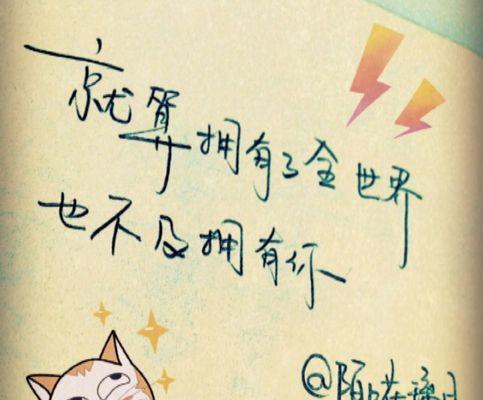 就算拥有了全世界
也不及拥有你
@陌